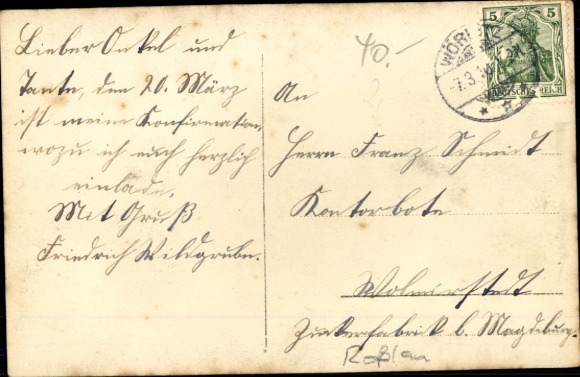 Lieber Onkel und
Tante, den 20. März
ist meine Konfirmation,
wozu ich euch herzlich
einlade.
Mit Gruß
Friedrich Wildgrube.
40.-
5 5
DEUTSCHES REICH
WÖRLITZ
7.3.
An
Herrn Franz Schmidt
Kontorbote
Wolmirstedt
Zuckerfabrik b. Magdeburg.
Roßlau